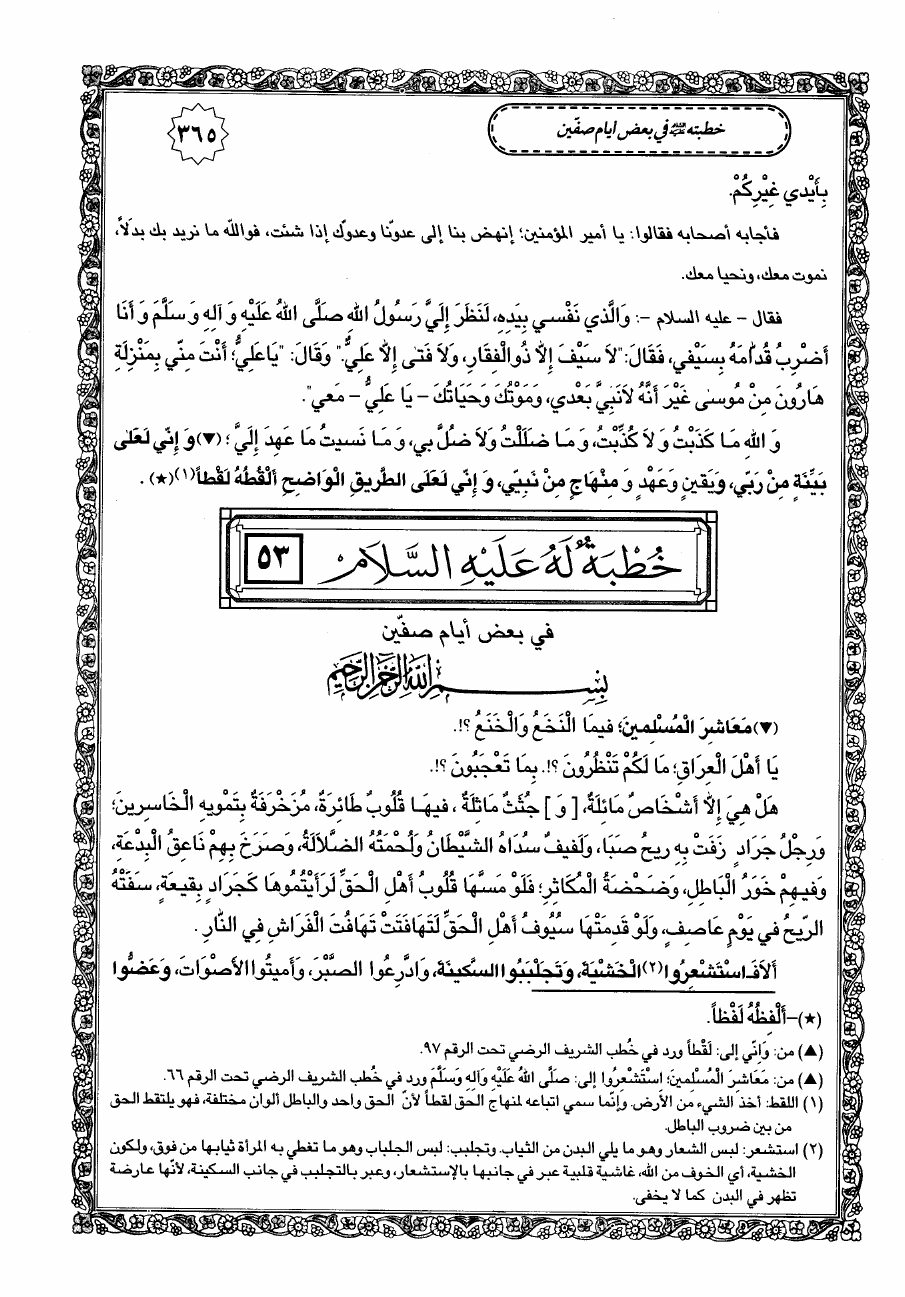 خطبته عليه السلام في بعض ايام صفّين
٣٦٥
بِأَيْدي غَيْرِكُمْ.
فأجابه أصحابه فقالوا: يا أمير المؤمنين؛ إنهض بنا إلى عدوّنا وعدوّك إذا شئت، فوالله ما نريد بك بدلاً،
نموت معك، ونحيا معك.
فقال – عليه السلام –: وَالَّذي نَفْسي بِيَدِهِ، لَنَظَرَ إِلَيَّ رَسُولُ اللهِ صَلَّى اللهُ عَلَيْهِ وَ آلِهِ وَ سَلَّمَ وَ أَنَا
أَضْرِبُ قُدَّامَهُ بِسَيْفي، فَقَالَ: "لاَ سَيْفَ إِلاَّ ذُو الْفِقَارِ، وَلاَ فَتى إِلاَّ عَلِيٌّ." وَقَالَ: "يَا عَلِيُّ؛ أَنْتَ مِنّي بِمَنْزِلَةِ
هَارُونَ مِنْ مُوسى غَيْرَ أَنَّهُ لاَ نَبِيَّ بَعْدي، وَمَوْتُكَ وَحَيَاتُكَ – يَا عَلِيُّ – مَعي".
وَ اللهِ مَا كَذَبْتُ وَ لاَ كُذِّبْتُ، وَ مَا ضَلَلْتُ وَلاَ ضُلَّ بي، وَ مَا نَسيتُ مَا عَهِدَ إِلَيَّ؛ (▼) وَ إِنّي لَعَلى
بَيِّنَةٍ مِنْ رَبّي، وَيَقينٍ وَعَهْدٍ وَ مِنْهَاجٍ مِنْ نَبِيّي، وَ إِنّي لَعَلَى الطَّريقِ الْوَاضِحِ أَلْقُطُهُ لَقْطاً(١)(★).
خُطْبَةٌ لَهُ عَلَيْهِ السَّلاَمُ ٥٣
في بعض أيام صفّين
بِسْمِ اللهِ الرَّحْمنِ الرَّحيمِ
(▼) مَعَاشِرَ الْمُسْلِمينَ؛ فيمَا النَّخَعُ وَالْخَنَعُ ؟!.
يَا أَهْلَ الْعِرَاقِ؛ مَا لَكُمْ تَنْظُرُونَ ؟!. بِمَا تَعْجَبُونَ ؟!.
هَلْ هِيَ إِلاَّ أَشْخَاصٌ مَائِلَةٌ، [ وَ ] جُثَثٌ مَاثِلَةٌ ، فيهَا قُلُوبٌ طَائِرَةٌ، مُزَخْرَفَةٌ بِتَمْويهِ الْخَاسِرينَ؛
وَرِجْلُ جَرَادٍ زَفَتْ بِهِ ريحُ صَبَا، وَلَفيفٌ سُدَاهُ الشَّيْطَانُ وَلُحْمَتُهُ الضَّلاَلَةُ، وَصَرَخَ بِهِمْ نَاعِقُ الْبِدْعَةِ،
وَفيهِمْ خَوَرُ الْبَاطِلِ، وَضَحْضَحَةُ الْمُكَاثِرِ؛ فَلَوْ مَسَّهَا قُلُوبُ أَهْلِ الْحَقِّ لَرَأَيْتُمُوهَا كَجَرَادٍ بِقيعَةٍ، سَفَتْهُ
الرّيحُ في يَوْمٍ عَاصِفٍ، وَلَوْ قَدِمَتْهَا سُيُوفُ أَهْلِ الْحَقِّ لَتَهَافَتَتْ تَهَافُتَ الْفَرَاشِ فِي النَّارِ .
أَلاَ فَاسْتَشْعِرُوا(٢) الْخَشْيَةَ، وَتَجَلْبَبُوا السَّكينَةَ، وَادَّرِعُوا الصَّبْرَ، وَأَميتُوا الأَصْوَاتَ، وَعَضُّوا
(★)–أَلْفِظُهُ لَفْظاً.
(▲) من: وَإنّي إلى: لَقْطاً ورد في خُطب الشريف الرضي تحت الرقم ٩٧.
(▲) من: مَعَاشِرَ الْمُسْلِمينَ؛ اسْتَشْعِرُوا إلى: صَلَّى اللهُ عَلَيْهِ وَآلِهِ وَسَلَّمَ ورد في خُطب الشريف الرضي تحت الرقم ٦٦.
(١) اللقط: أخذ الشيء من الأرض. وإنّما سمي اتباعه لمنهاج الحق لقطاً لأنّ الحق واحد والباطل ألوان مختلفة، فهو يلتقط الحق
من بين ضروب الباطل.
(٢) استشعر: لبس الشعار وهو ما يلي البدن من الثياب. وتجلبب: لبس الجلباب وهو ما تغطي به المرأة ثيابها من فوق، ولكون
الخشية، أي الخوف من الله، غاشية قلبية عبر في جانبها بالإستشعار، وعبر بالتجلبب في جانب السكينة، لأنّها عارضة
تظهر في البدن كما لا يخفى.